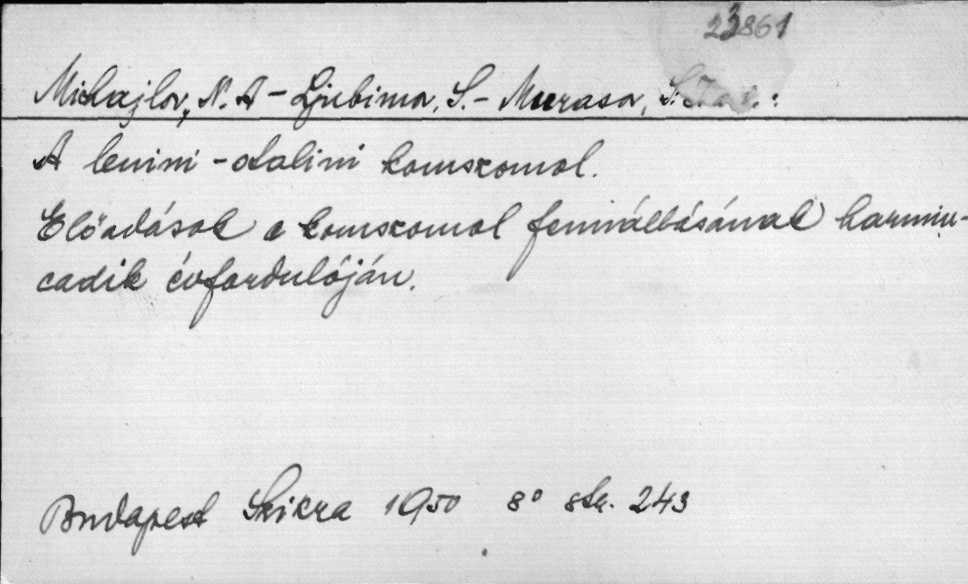 23861
Mihajlov, N. A - Ljubimova, S. - Murasov, S.
A lenini - stalini komszomol.
Előadások a komszomol fennállásának harmin-
cadik évfordulóján.
Budapest Szikra 1950 8° str. 243